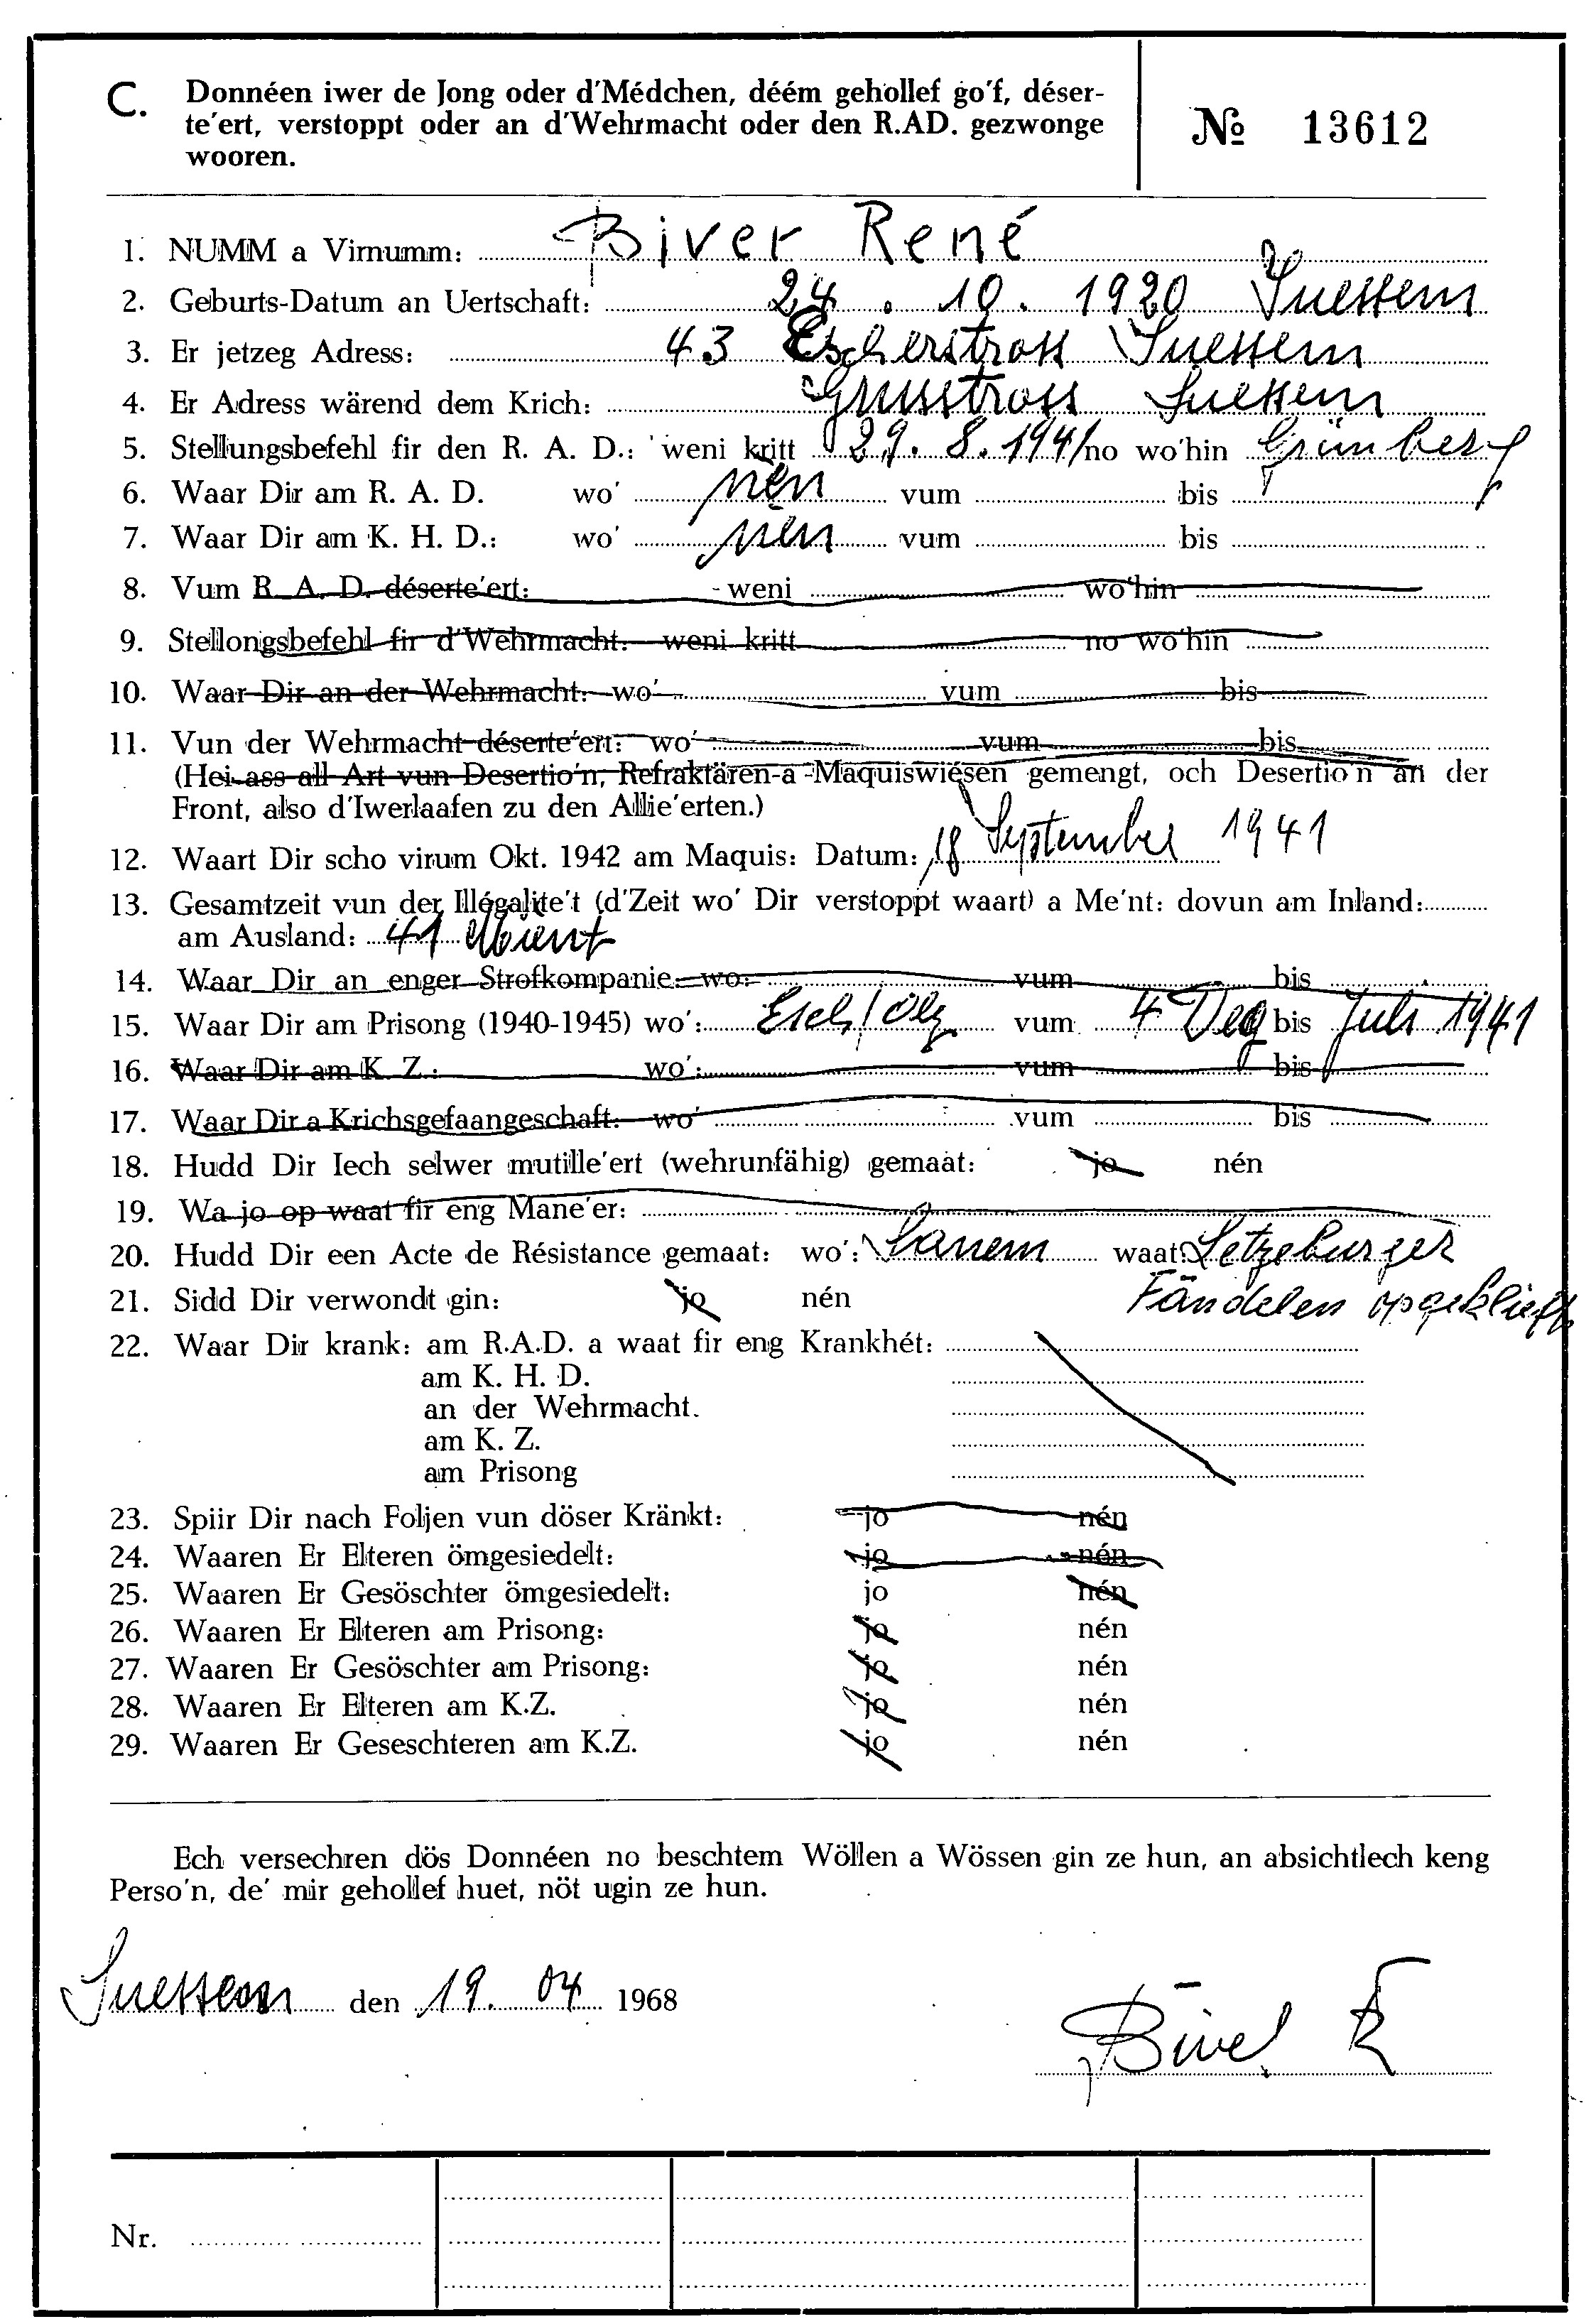 C. Donnéen iwer de Jong oder d'Médchen, déém gehollef go'f, déser-
te'ert, verstoppt oder an d'Wehrmacht oder den R.AD. gezwonge
wooren.
№ 13612
1. NUMM a Virnumm: Biver René
2. Geburts-Datum an Uertschaft: 24. 10. 1920 Suessem
3. Er jetzeg Adress: 43 Escherstross Suessem
4. Er Adress wärend dem Krich: Suessem
5. Stellungsbefehl fir den R. A. D.: weni kritt 29. 8. 1941 no wo'hin Grünberg
6. Waar Dir am R. A. D. wo' nén vum bis
7. Waar Dir am K. H. D.: wo' nén vum bis
8. Vum R. A. D. déserte'ert: weni wo'hin
9. Stellongsbefehl fir d'Wehrmacht: weni kritt no wo'hin
10. Waar Dir an der Wehrmacht: wo' vum bis
11. Vun der Wehrmacht déserte'ert: wo' vum bis
(Hei ass all Art vun Desertio'n, Refraktären-a -Maquiswiésen gemengt, och Desertio'n an der
Front, also d'Iwerlaafen zu den Allie'erten.)
12. Waart Dir scho virum Okt. 1942 am Maquis: Datum: 18 September 1941
13. Gesamtzeit vun der Illégalite't (d'Zeit wo' Dir verstoppt waart) a Me'nt: dovun am Inland:
am Ausland: 41 Mient
14. Waar Dir an enger Strofkompanie: wo: vum bis
15. Waar Dir am Prisong (1940-1945) wo': Esch/Olz vum 4 Deg bis Juli 1941
16. Waar Dir am K. Z.: wo': vum bis
17. Waar Dir a Krichsgefaangeschaft: wo' vum bis
18. Hudd Dir Iech selwer mutille'ert (wehrunfähig) gemaat: jo nén
19. Wa jo op waat fir eng Mane'er:
20. Hudd Dir een Acte de Résistance gemaat: wo': Sanem waat: Letzeburger
21. Sidd Dir verwondt gin: jo nén Fändelen opgeklieft
22. Waar Dir krank: am R.A.D. a waat fir eng Krankhét:
am K. H. D.
an der Wehrmacht.
am K. Z.
am Prisong
23. Spiir Dir nach Foljen vun döser Kränkt: jo nén
24. Waaren Er Elteren ömgesiedelt: jo nén
25. Waaren Er Gesöschter ömgesiedelt: jo nén
26. Waaren Er Elteren am Prisong: jo nén
27. Waaren Er Gesöschter am Prisong: jo nén
28. Waaren Er Elteren am K.Z. jo nén
29. Waaren Er Geseschteren am K.Z. jo nén
Ech versechren dös Donnéen no beschtem Wöllen a Wössen gin ze hun, an absichtlech keng
Perso'n, de' mir gehollef huet, nöt ugin ze hun.
Suessem den 19. 04 1968
Biver R
Nr.